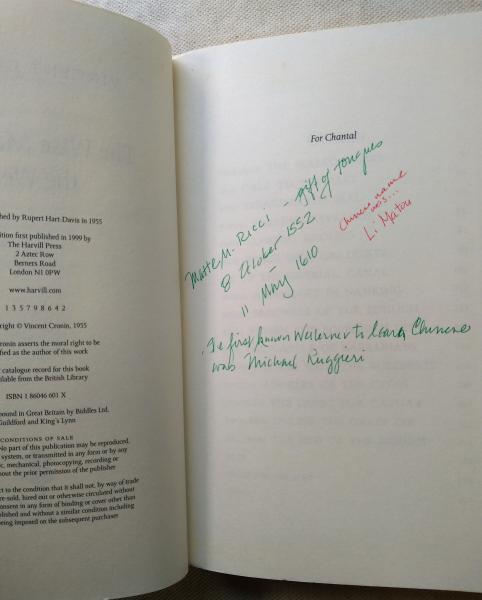 shed by Rupert Hart-Davis in 1955
ition first published in 1999 by
The Harvill Press
2 Aztec Row
Berners Road
London N1 0PW
www.harvill.com
1 3 5 7 9 8 6 4 2
right © Vincent Cronin, 1955
Cronin asserts the moral right to be
ified as the author of this work
catalogue record for this book
ailable from the British Library
ISBN 1 86046 601 X
bound in Great Britain by Biddles Ltd.
Guildford and King's Lynn
CONDITIONS OF SALE
No part of this publication may be reproduced,
system, or transmitted in any form or by any
ic, mechanical, photocopying, recording or
out the prior permission of the publisher
ct to the condition that it shall not, by way of trade
re-sold, hired out or otherwise circulated without
onsent in any form of binding or cover other than
blished and without a similar condition including
eing imposed on the subsequent purchaser
For Chantal
Matteo M. Ricci - gift of tongues
8 October 1552
-
11 May 1610
Chinese name
was...
Li Matou
The first known Westerner to learn Chinese
was Michael Ruggieri